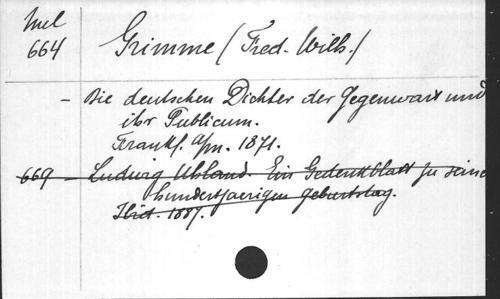 Mel
664
Grimme (Fred. Wilh.)
- Die deutschen Dichter der Gegenwart und
ihr Publicum.
Frankf. a/m. 1871.
669 - Ludwig Uhland. Ein Gedenkblatt zu seine
hundertjaerigen Geburtstag.
Ibid. 1887.